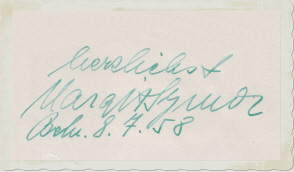 herzlichst
Margit Symo
Bln. 8. 7. 58